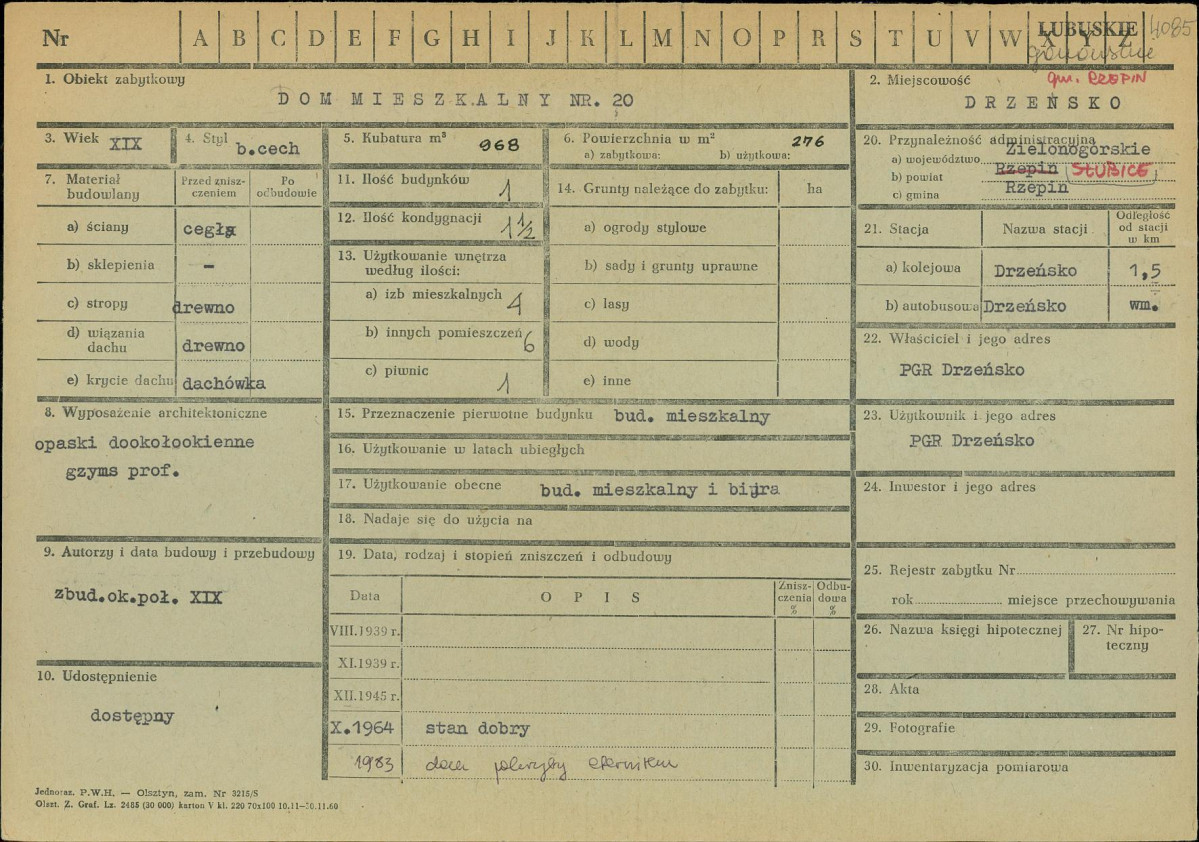 Nr A B C D E F G H I J K L M N O P R S T U V W X Y Z LUBUSKIE 4085
gorzowskie
1. Obiekt zabytkowy
DOM MIESZKALNY NR. 20
2. Miejscowość gm. RZEPIN
DRZEŃSKO
3. Wiek XIX
4. Styl b.cech
5. Kubatura m³ 968
6. Powierzchnia w m² 276
a) zabytkowa: b) użytkowa:
7. Materiał budowlany
Przed znisz-
czeniem
Po
odbudowie
a) ściany cegła
b) sklepienia –
c) stropy drewno
d) wiązania
dachu drewno
e) krycie dachu dachówka
8. Wyposażenie architektoniczne
opaski dookołookienne
gzyms prof.
9. Autorzy i data budowy i przebudowy
zbud.ok.poł. XIX
10. Udostępnienie
dostępny
11. Ilość budynków 1
12. Ilość kondygnacji 1 1/2
13. Użytkowanie wnętrza
według ilości:
a) izb mieszkalnych 4
b) innych pomieszczeń 6
c) piwnic 1
14. Grunty należące do zabytku: ha
a) ogrody stylowe
b) sady i grunty uprawne
c) lasy
d) wody
e) inne
15. Przeznaczenie pierwotne budynku bud. mieszkalny
16. Użytkowanie w latach ubiegłych
17. Użytkowanie obecne bud. mieszkalny i biura
18. Nadaje się do użycia na
19. Data, rodzaj i stopień zniszczeń i odbudowy
Data OPIS Znisz-
czenia
%
Odbu-
dowa
%
VIII.1939 r.
XI.1939 r.
XII.1945 r.
X.1964 stan dobry
1983 dach pokryty eternitem
20. Przynależność administracyjna
a) województwo Zielonogórskie
b) powiat Rzepin (SŁUBICE)
c) gmina Rzepin
21. Stacja Nazwa stacji Odległość
od stacji
w km
a) kolejowa Drzeńsko 1,5
b) autobusowa Drzeńsko wm.
22. Właściciel i jego adres
PGR Drzeńsko
23. Użytkownik i jego adres
PGR Drzeńsko
24. Inwestor i jego adres
25. Rejestr zabytku Nr
rok miejsce przechowywania
26. Nazwa księgi hipotecznej
27. Nr hipo-
teczny
28. Akta
29. Fotografie
30. Inwentaryzacja pomiarowa
Jednoraz. P.W.H. — Olsztyn, zam. Nr 3215/S
Olszt. Z. Graf. Lz. 2485 (30 000) karton V kl. 220 70x100 10.11—30.11.60